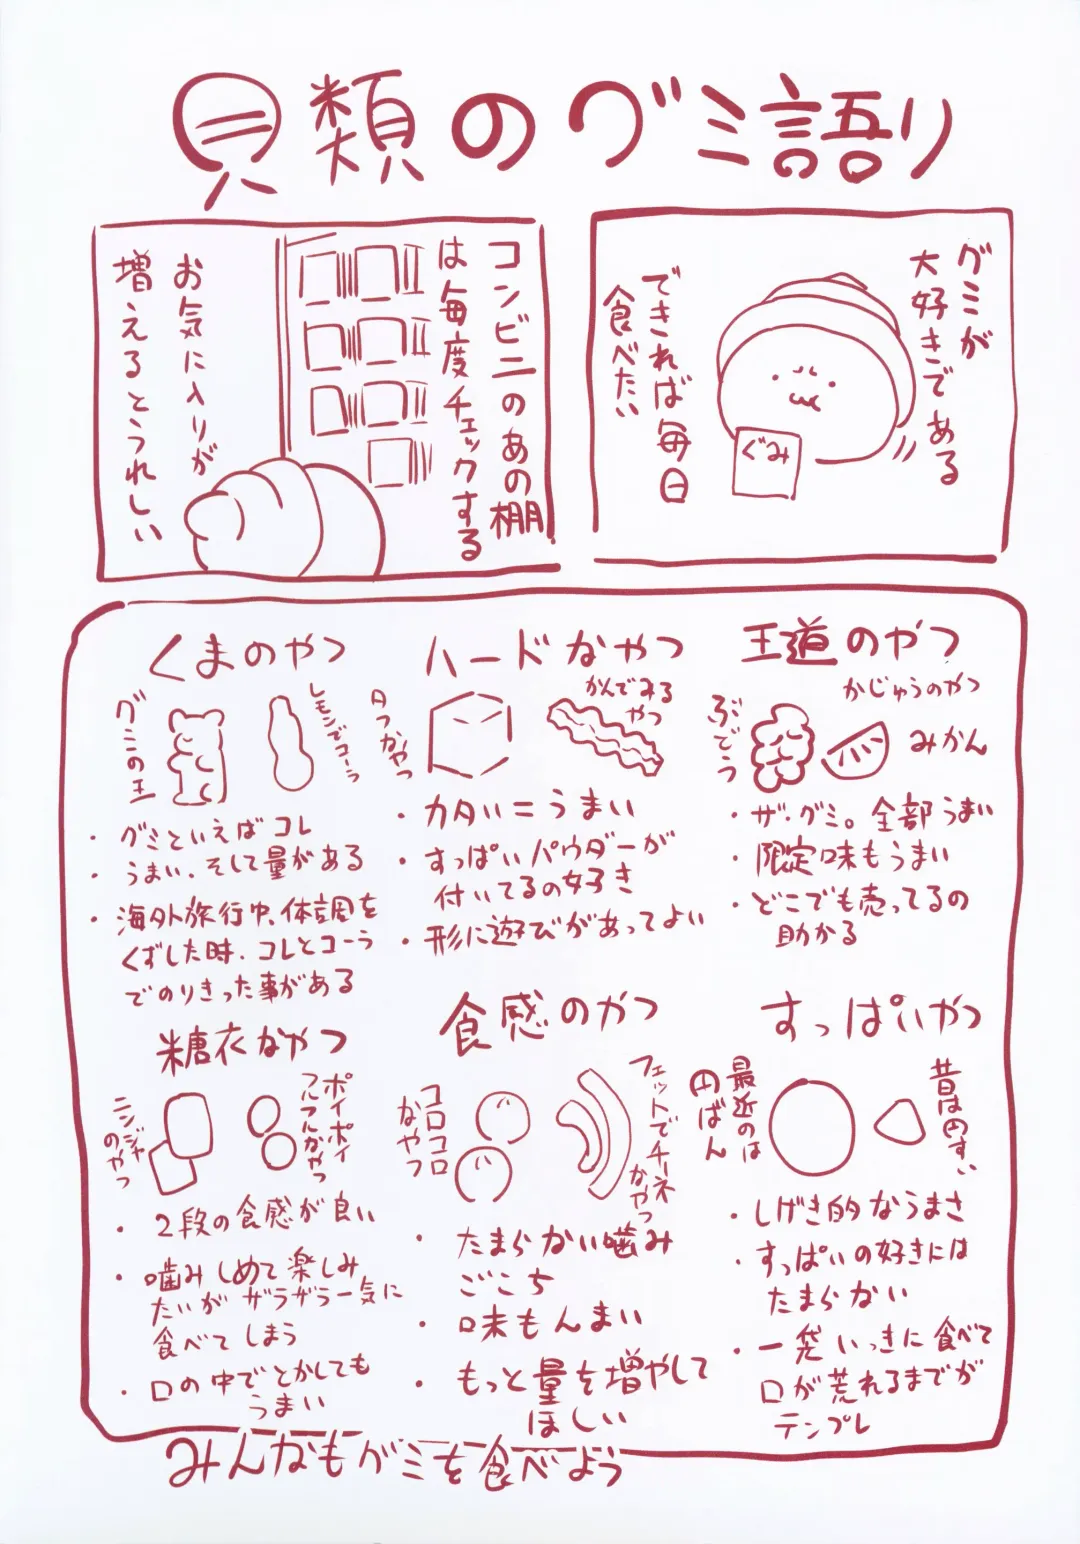 貝類のグミ語り
グミが
大好きである
できれば毎日
食べたい
ぐみ
コンビニのあの棚
は毎度チェックする
お気に入りが
増えるとうれしい
王道のやつ
かじゅうのやつ
ぶどう
みかん
・ザ・グミ。全部うまい
・限定味もうまい
・どこでも売ってるの
助かる
ハードなやつ
タフなやつ
かんでみる
やつ
・カタい=うまい
・すっぱいパウダーが
付いてるの好き
・形に遊びがあってよい
くまのやつ
グミの王
レモンでコーラ
・グミといえばコレ
・うまい、そして量がある
・海外旅行中、体調を
くずした時、コレとコーラ
でのりきった事がある
すっぱいやつ
昔はのすい
最近のは
円ばん
・しげき的なうまさ
・すっぱいの好きには
たまらない
・一袋いっきに食べて
口が荒れるまでが
テンプレ
食感のやつ
コロコロ
なやつ
フェットでチーネ
なやつ
・たまらない噛み
ごこち
・味もんまい
・もっと量を増やして
ほしい
糖衣なやつ
ニンジャ
のやつ
ポイポイ
フルフルなやつ
・2段の食感が良い
・噛みしめて楽しみ
たいがザラザラ一気に
食べてしまう
・口の中でとかしても
うまい
みんなもグミを食べよう